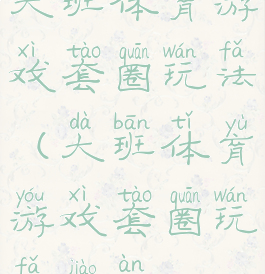 大班体育游
xì tào quān wán fǎ
戏套圈玩法
dà bān tǐ yù
（大班体育
yóu xì tào quān wán
游戏套圈玩
fǎ jiào àn